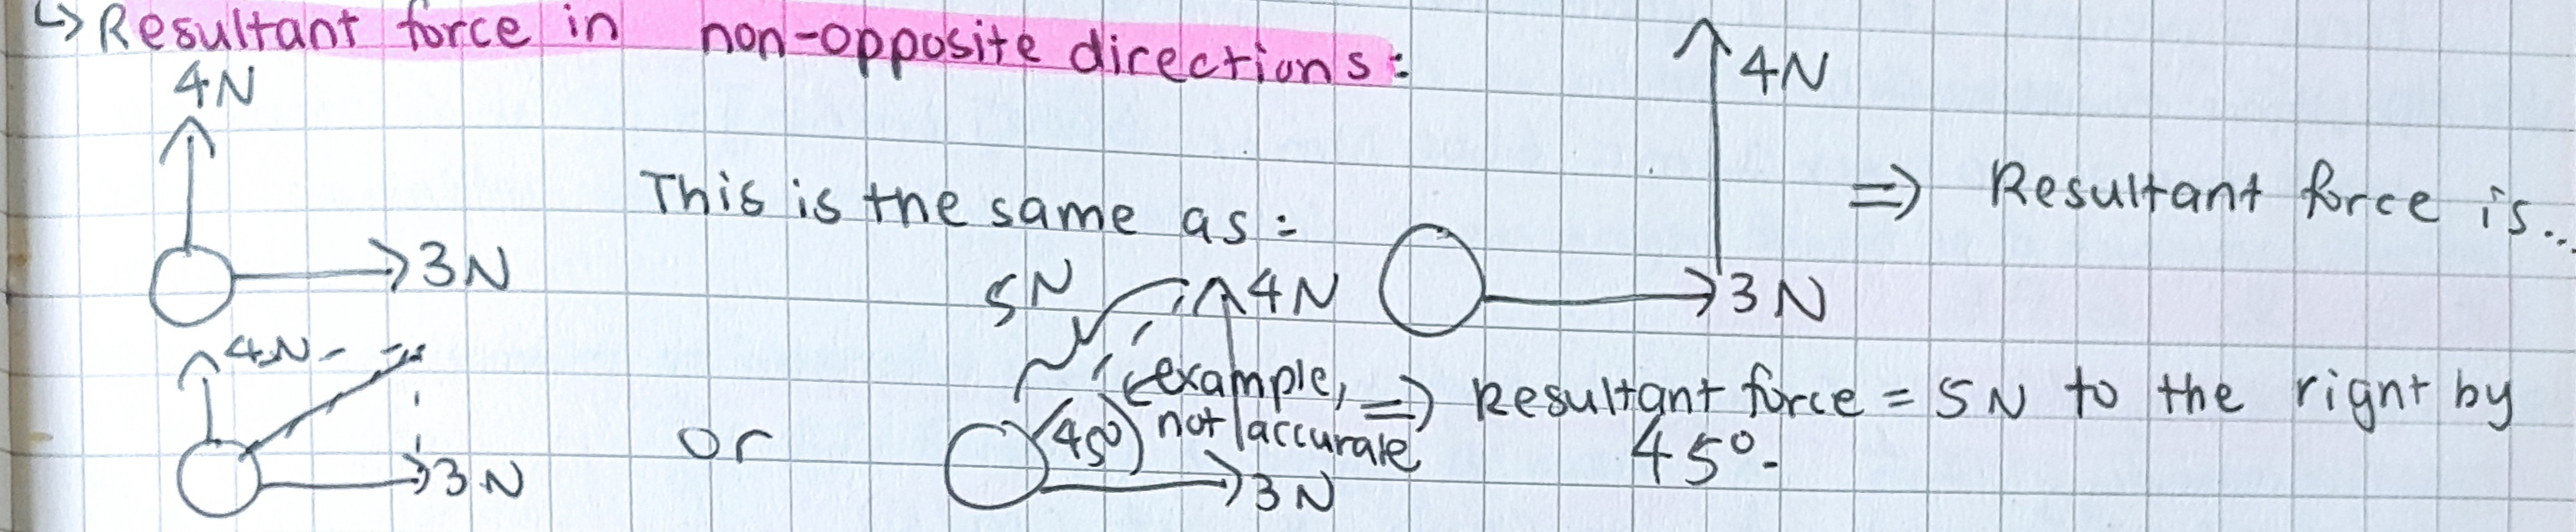 ↳ Resultant force in non-opposite directions:
4N
3N
This is the same as:
4N
3N
⇒ Resultant force is...
4N
3N
or
5N
4N
45°
(example,
not accurate
3N
⇒ Resultant force = 5N to the right by
45°.